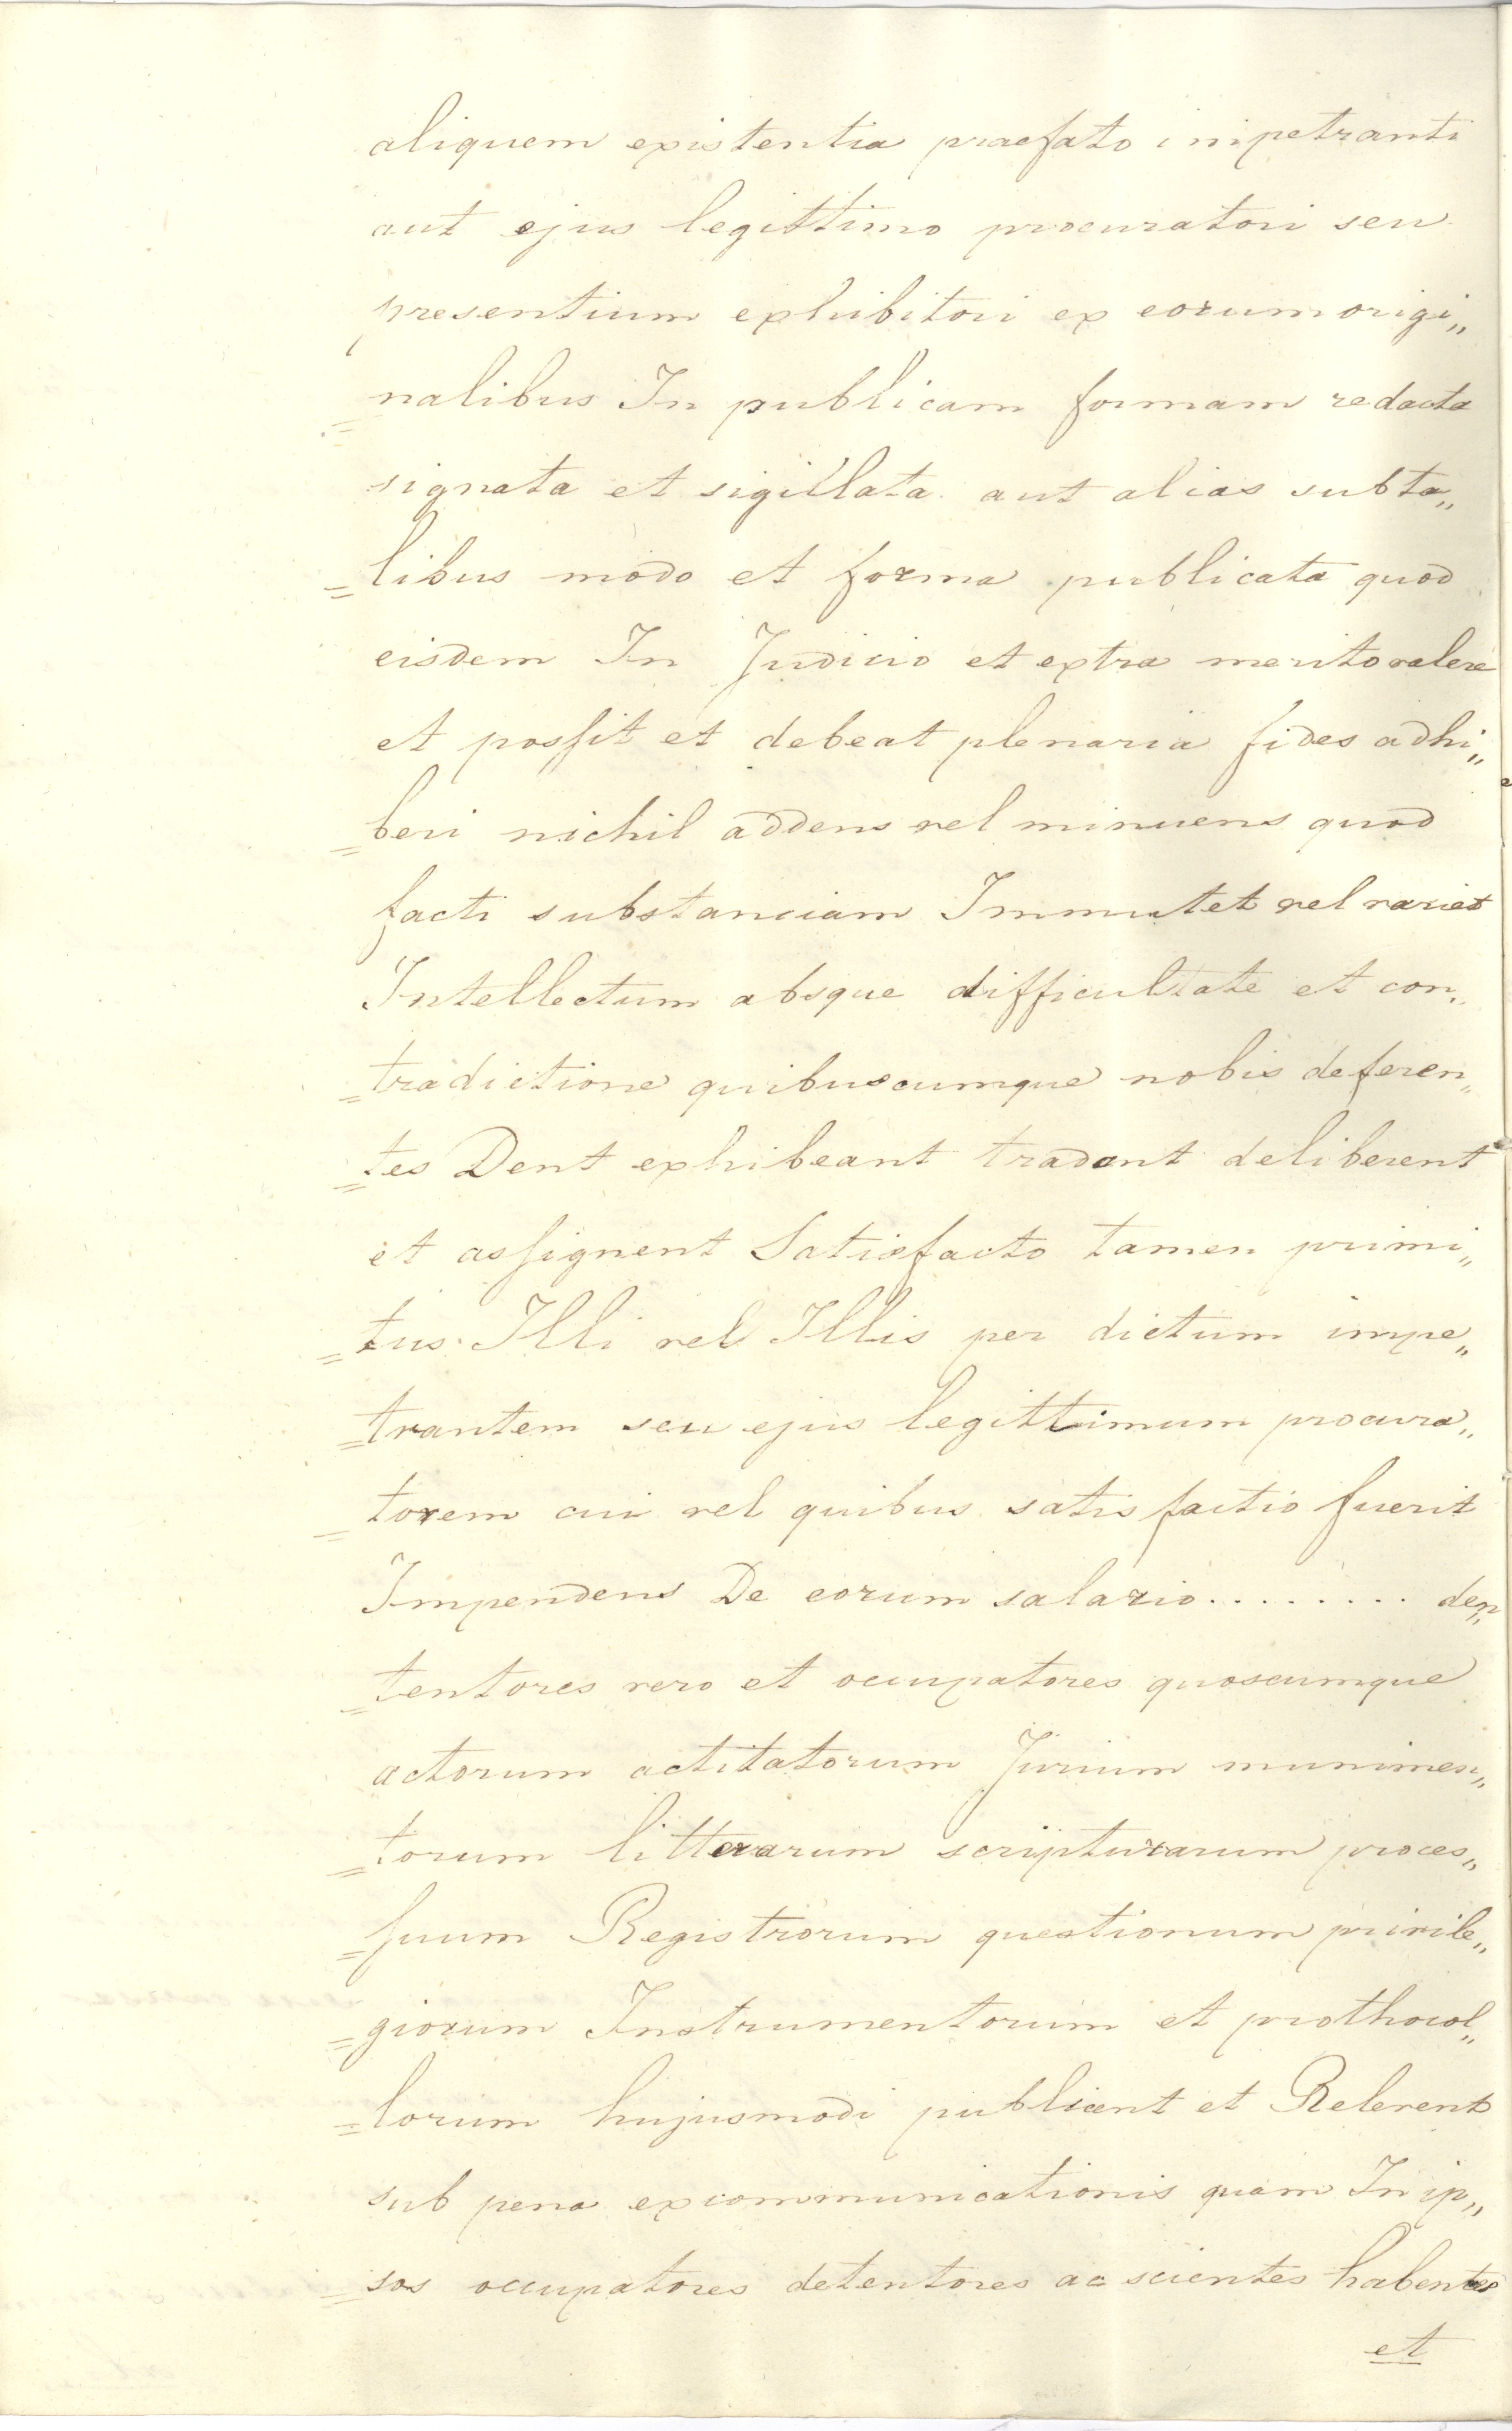 aliquem existentia praefato impetranti
aut ejus legittimo procuratori seu
presentium exhibitori ex eorum origi„
nalibus In publicam formam redacta
signata et sigillata aut alias subta„
=libus modo et forma publicata quod
eisdem In Judicio et extra merito valere
et possit et debeat plenaria fides adhi„
=beri nichil addens vel minuens quod
facti substanciam Immutet vel variet
Intellectum absque difficultate et con„
=tradictione quibuscumque nobis deferen„
=tes Dent exhibeant tradant deliberent
et assignent Satisfacto tamen primi„
=tus Illi vel Illis per dictum impe„
=trantem seu ejus legittimum procura„
=torem cui vel quibus satisfactio fuerit
Impendens De eorum salario......... den„
=tentores vero et occupatores quoscumque
actorum actitatorum Jurium munimen„
=torum litterarum scripturarum proces„
=suum Registrorum questionum privile„
=giorum Instrumentorum et prothocol„
=lorum hujusmodi publicent et Relevent
sub pena excommunicationis quam In ip„
=sos occupatores detentores ac scientes habentes
et